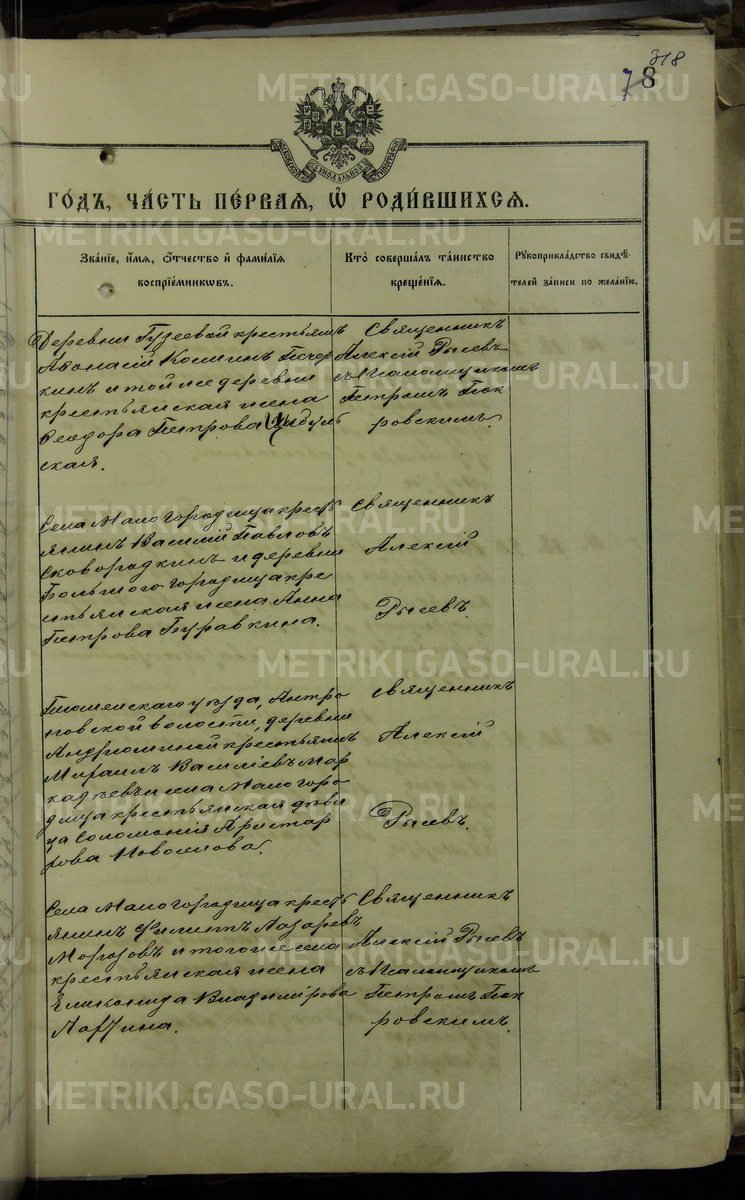 318
78
METRIKI.GASO-URAL.RU
МОСКОВСКОЙ СѴНОДАЛЬНОЙ ТИПОГРАФІИ
ГО́ДЪ, ЧА́СТЬ ПЕ́РВАЯ, Ѽ РОДИ́ВШИХСЯ.
Зва́нїе, и́мя, о́тчество и҆ фами́лїя
воспрїе́мникѡвъ.
Кто̀ соверша́лъ та́инство
креще́нїя.
Рукоприкла́дство свидѣ́-
телей за́писи по жела́нїю.
Деревни Гусевой крестьянъ
Аѳанасій Косминъ Пече
кинъ и той же деревни
крестьянская жена
Ѳеодора Петрова
ская.
Священникъ
Алексій Рысевъ
съ Псаломщикомъ
Петромъ Пок
ровскимъ.
Села Малогородища кресть
янинъ Василій Павловъ
Сковородкинъ и деревни
Большого городища кре
стьянская жена Анна
Петрова Буравкина.
Священникъ
Алексій
Рысевъ.
Тюменскаго уѣзда, Антро
повской волости, деревни
Андрюшиной крестьянинъ
Михаилъ Василіевъ Мар
кадѣевъ и села Малогоро
дища крестьянская дѣви
ца Соломонія Аристар
хова Новоселова.
Священникъ
Алексій
Рысевъ.
Села Малогородища кресть
янинъ Филиппъ Лазаревъ
Морозовъ и того же села
крестьянская жена
Еликонида Владимірова
Лапина.
Священникъ
Алексій Рысевъ
съ Псаломщикомъ
Петромъ Пок
ровскимъ.
METRIKI.GASO-URAL.RU